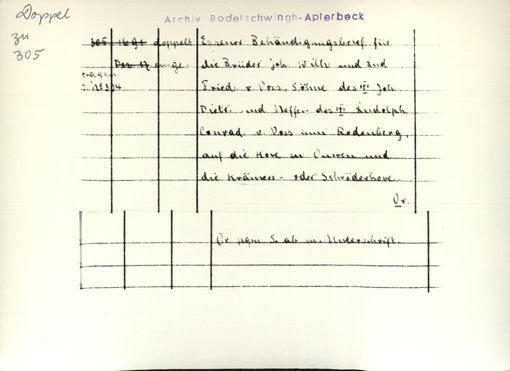 Doppel
zu
305
Archiv Bodelschwingh-Aplerbeck
305 1691 doppelt Essener Behändigungsbrief für
Dez. 17 die Brüder Joh. Wilh. und
Fried. v. Voss, Söhne des Joh.
No 304
Dietr. und Neffen des Rudolph
Conrad v. Voss zum Rodenberg,
auf die Hove in und
die Krämers- oder Schröderhove.
Or.
Or. Pgm. S. ab m. Unterschrift.